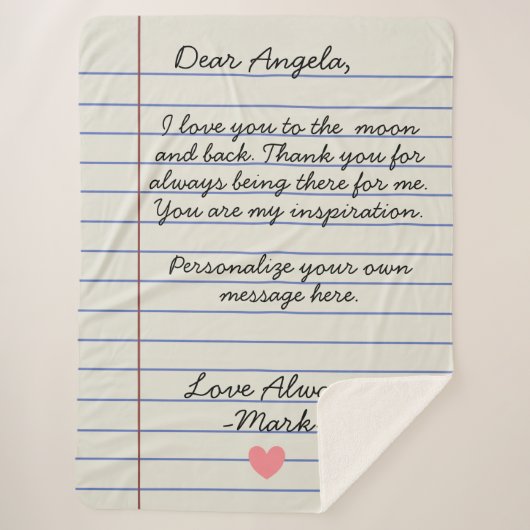 Dear Angela,
I love you to the moon
and back. Thank you for
always being there for me.
You are my inspiration.
Personalize your own
message here.
Love Alwa
-Mark